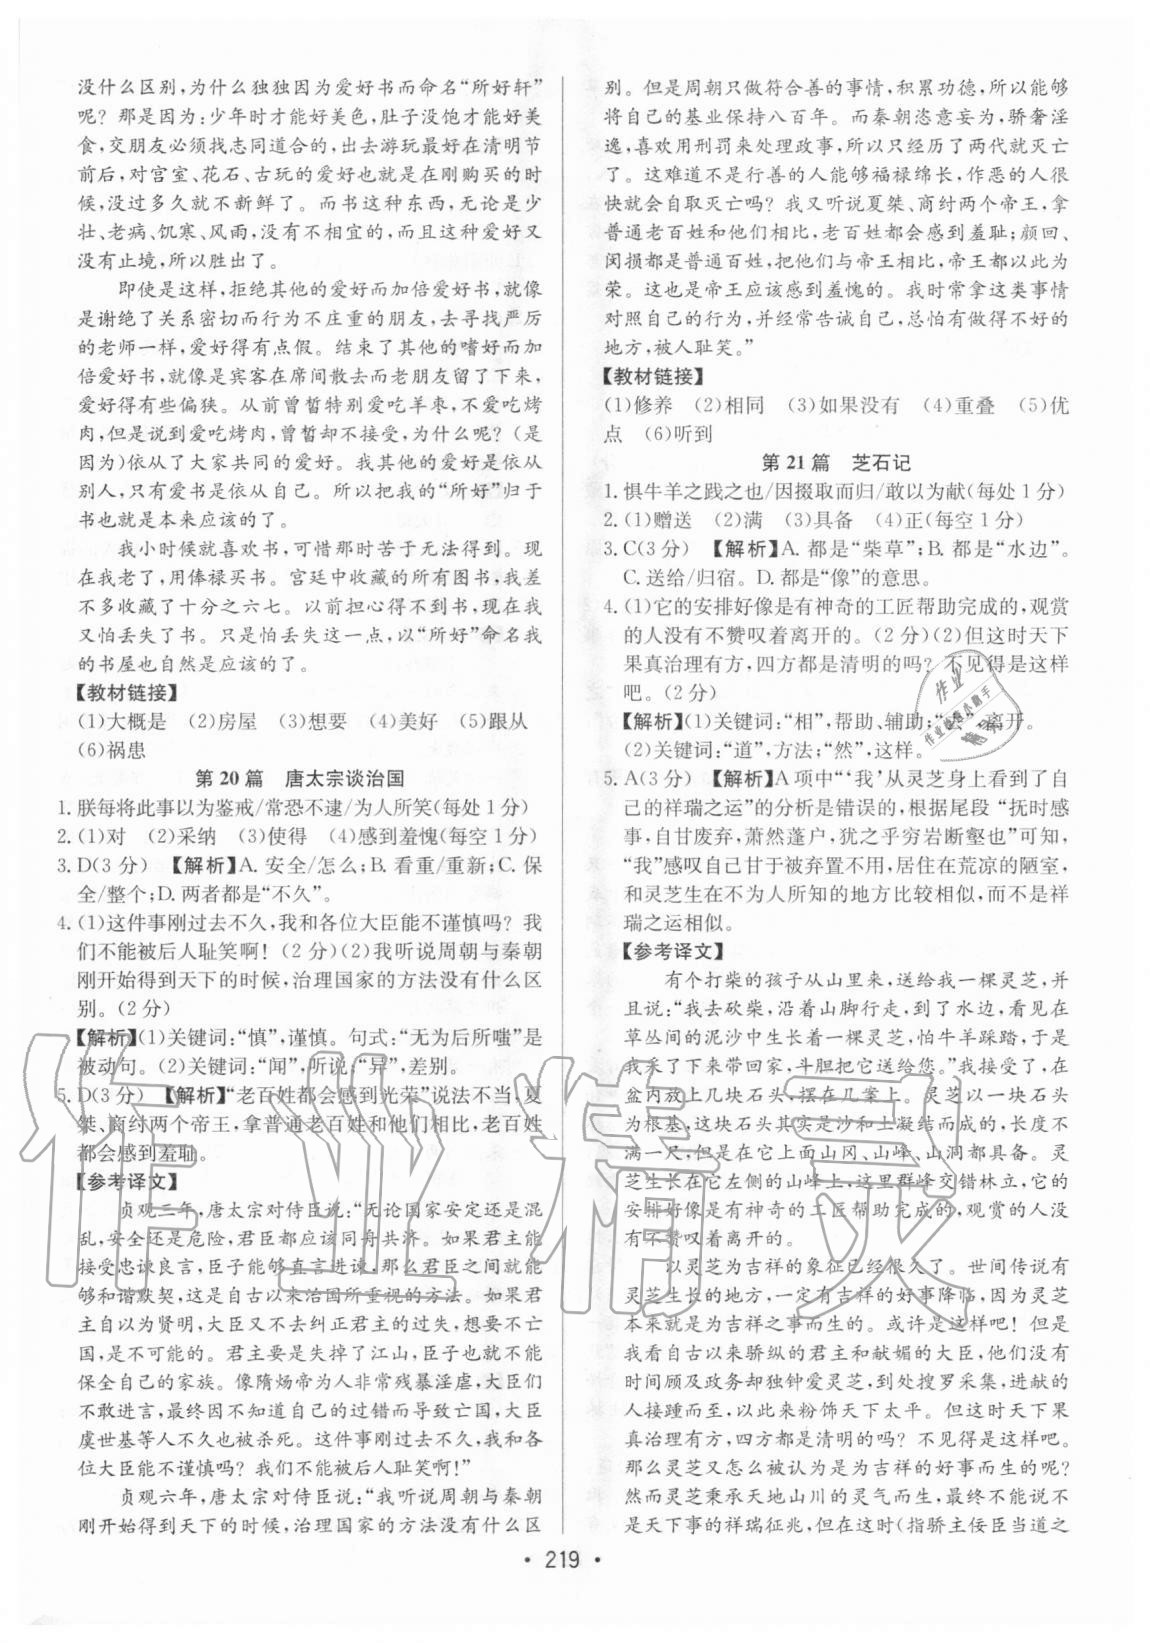 没什么区别,为什么独独因为爱好书而命名“所好轩”
呢？那是因为:少年时才能好美色,肚子没饱才能好美
食,交朋友必须找志同道合的,出去游玩最好在清明节
前后,对宫室、花石、古玩的爱好就是在刚购买的时
候,没过多久就不新鲜了。而书这种东西,无论是少
壮、老病、饥寒、风雨,没有不相合的,而且这种爱好又
没有止境,所以胜出了。
即使是这样,拒绝其他的爱好而加倍爱好书,就像
是谢绝了关系密切而行为不庄重的朋友,去寻找严厉
的老师一样,爱好得有点假。结束了其他的嗜好而加
倍爱好书,就像是宾客在席间散去而老朋友留了下来,
爱好得有些偏狭。从前曾皙特别爱吃羊枣,不爱吃烤
肉,但是说到爱吃烤肉,曾皙却不接受,为什么呢？(是
因为)依从了大家共同的爱好。吃烤肉是依从
别人,只有爱书是依从自己。所以把我的“所好”归于
书也就是本来应该的了。
我小时候就喜欢书,可惜那时苦于无法得到。现
在我老了,用俸禄买书。宫廷中收藏的所有图书,我差
不多收藏了十分之六七。以前担心得不到书,现在我
又怕丢失了书。只是怕丢失这一点,以“所好”命名我
的书屋也自然是应该的了。
【教材链接】
(1)大概是 (2)房屋 (3)想要 (4)美好 (5)跟从
(6)祸患
第 20 篇 唐太宗谈治国
1. 朕每将此事以为鉴戒/常恐不逮/为人所笑(每处 1 分)
2. (1)对 (2)采纳 (3)使得 (4)感到羞愧(每空 1 分)
3. D(3 分) 【解析】A. 安全/怎么;B. 看重/重新;C. 保
全/整个;D. 两者都是“不久”。
4. (1)这件事刚过去不久,我和各位大臣能不谨慎吗？我
们不能被后人耻笑啊！(2 分)(2)我听说周朝与秦朝
刚开始得到天下的时候,治理国家的方法没有什么区
别。(2 分)
【解析】(1)关键词:“慎”,谨慎。句式:“无为后所嗤”是
被动句。(2)关键词:“闻”,听说;“异”,差别。
5. D(3 分) 【解析】“老百姓都会感到光荣”说法不当,夏
桀、商纣两个帝王,拿普通老百姓和他们相比,老百姓
都会感到羞耻。
【参考译文】
贞观三年,唐太宗对侍臣说:“无论国家安定还是混
乱,安全还是危险,君臣都应该同舟共济。如果君主能
接受忠谏良言,臣子能够直言进谏,那么君臣之间就能
够和谐默契,这是自古以来治国所重视的方法。如果君
主自以为贤明,大臣又不去纠正君主的过失,想要不亡
国,是不可能的。君主要是失掉了江山,臣子也就不能
保全自己的家族。像隋炀帝为人非常残暴淫虐,大臣们
都沉默寡言,最终因不知道自己的过错而导致亡国,大臣
虞世基等人不久也被杀死。这件事刚过去不久,我和各
位大臣能不谨慎吗？我们不能被后人耻笑啊！”
贞观六年,唐太宗对侍臣说:“我听说周朝与秦朝
刚开始得到天下的时候,治理国家的方法没有什么区
别。但是周朝只做符合善的事情,积累功德,所以能够
将自己的基业保持八百年。而秦朝恣意妄为,骄奢淫
逸,喜欢用刑罚来处理政事,所以只经历了两代就灭亡
了。这难道不是行善的人能够福禄绵长,作恶的人很
快就会自取灭亡吗？我又听说夏桀、商纣两个帝王,拿
普通老百姓和他们相比,老百姓都会感到羞耻;颜回、
闵损都是普通百姓,把他们与帝王相比,帝王都以此为
荣。这也是帝王应该感到羞愧的。我时常拿这类事情
对照自己的行为,并经常告诫自己,总怕有做得不好的
地方,被人耻笑。”
【教材链接】
(1)修养 (2)相同 (3)如果没有 (4)重叠 (5)优
点 (6)听到
第 21 篇 芝石记
1. 惧牛羊之践之也/因掇取而归/敢以为献(每处 1 分)
2. (1)赠送 (2)满 (3)具备 (4)正(每空 1 分)
3. C(3 分) 【解析】A. 都是“柴草”;B. 都是“水边”。
C. 送给/归宿。D. 都是“像”的意思。
4. (1)它的安排好像是有神奇的工匠帮助完成的,观赏
的人没有不赞叹着离开的。(2 分)(2)但这时天下
果真治理有方,四方都是清明的吗？不见得是这样
吧。(2 分)
【解析】(1)关键词:“相”,帮助、辅助;“去”,离开。
(2)关键词:“道”,方法;“然”,这样。
5. A(3 分) 【解析】A 项中“‘我’从灵芝身上看到了自
己的祥瑞之运”的分析是错误的,根据尾段“抚时感
事,自甘废弃,萧然蓬户,犹之乎穷岩断壑也”可知,
“我”感叹自己甘于被弃置不用,居住在荒凉的陋室,
和灵芝生在不为人所知的地方比较相似,而不是祥
瑞之运相似。
【参考译文】
有个打柴的孩子从山里来,送给我一棵灵芝,并
且说:“我去砍柴,沿着山脚行走,到了水边,看见在
草丛间的泥沙中生长着一棵灵芝,怕牛羊踩踏,于是
我采了它回来,斗胆把它送给您。”我接受了,在
盆内放上几块石头,摆在几案上。灵芝以一块石头
为根基,这块石头其实是沙和土凝结而成的,长度不
满一尺,但是在它上面山冈、山峰、山洞都具备。灵
芝生长在它左侧的山峰上,这里群峰交错林立,它的
安排好像是有神奇的工匠帮助完成的,观赏的人没
有不赞叹着离开的。
以灵芝为吉祥的象征已经很久了。世间传说有
灵芝生长的地方,一定有吉祥的好事降临,因为灵芝
本来就是为吉祥之事而生的。或许是这样吧！但是
我看自古以来骄纵的君主和献媚的大臣,他们没有
时间顾及政务却独钟爱灵芝,到处搜罗采集,进献的
人接踵而至,以此来粉饰天下太平。但这时天下果
真治理有方,四方都是清明的吗？不见得是这样吧。
那么灵芝又怎么被认为是为吉祥的好事而生的呢？
然而灵芝秉承天地山川的灵气而生,最终不能不说
是天下事的祥瑞征兆,但在这时(指骄主佞臣当道之
• 219 •
作业精灵
作业
作业检查小助手
精灵